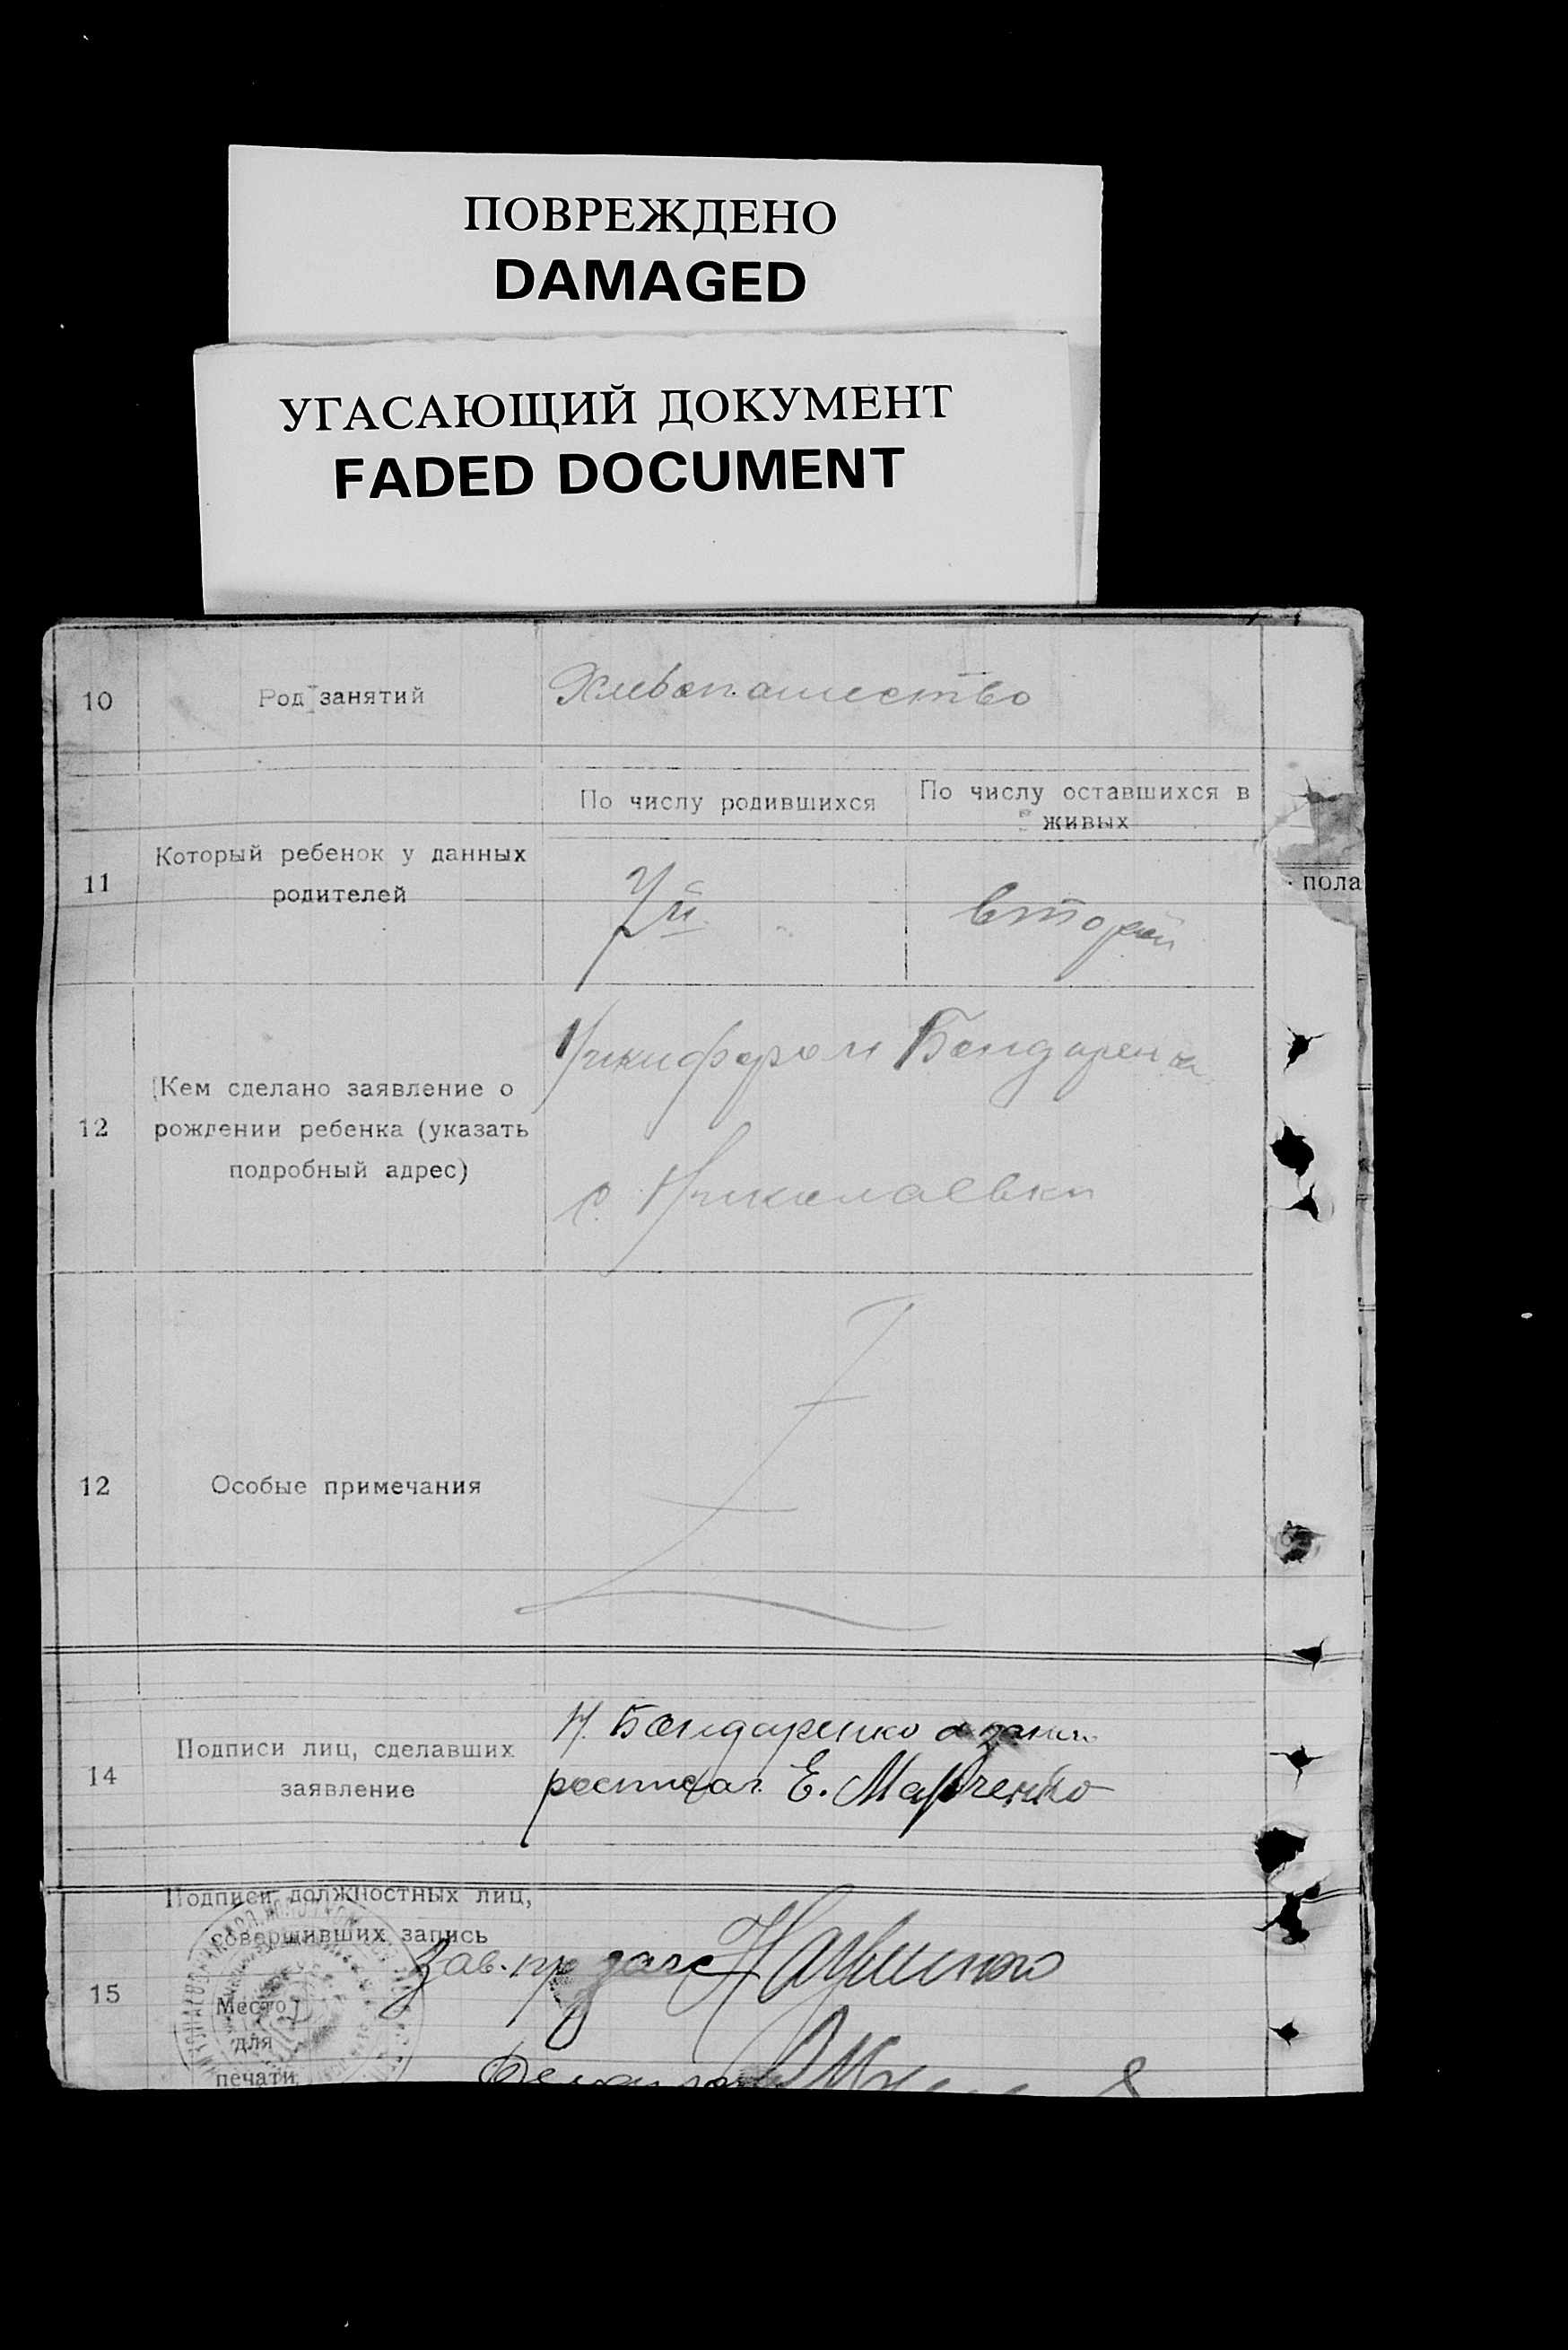 ПОВРЕЖДЕНО
DAMAGED
УГАСАЮЩИЙ ДОКУМЕНТ
FADED DOCUMENT
10 Род занятий Хлебопашество
По числу родившихся По числу оставшихся в живых
11 Который ребенок у данных родителей 7й второй
· пола
12 Кем сделано заявление о рождении ребенка (указать подробный адрес)
Никифором Бондаренко
с. Николаевки
12 Особые примечания
14 Подписи лиц, сделавших заявление
Н. Бондаренко а за
Е. Марченко
Подписи должностных лиц, совершивших запись
15
Зав.
Место
для
печати